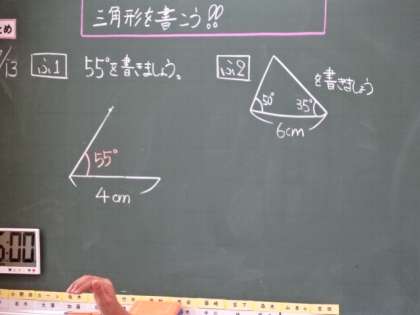 三角形を書こう!!
とめ
/13
ふ1 55°を書きましょう。
ふ2
50° 35°
6cm
を書きましょう
55°
4cm
5:00